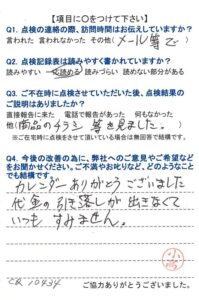 【項目に〇をつけて下さい】
Q1. 点検の連絡の際、訪問時間はお伝えしていますか？
言われた 言われなかった その他(メール等で)
Q2. 点検記録表は読みやすく書かれていますか？
読みやすい 読める 読みづらい 読めない部分がある
Q3. ご不在時に点検させていただいた後、点検結果の
ご説明はありましたか？
直接報告に来た 電話で報告があった 何もなかった
他(商品のチラシ等を見ました。)
※ご在宅時に点検をさせて頂いている場合は無回答で結構です。
Q4. 今後の改善の為に、弊社へのご意見やご希望など
をお聞かせください。ご不満やお叱りなど、どのようなこと
でも結構です。
カレンダーありがとうございました
代金の引き落しが出きなくて
いつもすみません。
CQ 10434
ご協力ありがとうございました。